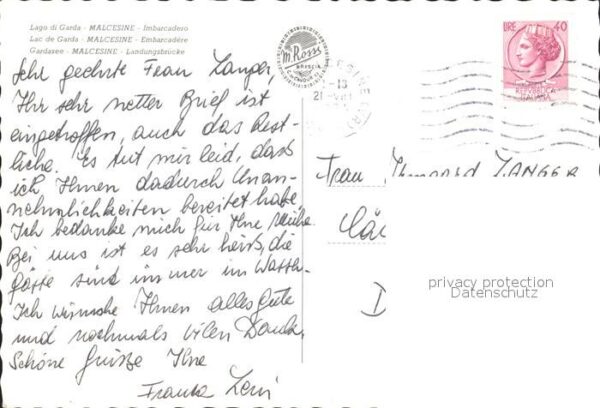 Lago di Garda - MALCESINE - Imbarcadero
Lac de Garda - MALCESINE - Embarcadère
Gardasee - MALCESINE - Landungsbrücke
Sehr geehrte Frau Zanger,
Ihr sehr netter Brief ist
eingetroffen, auch das Rest-
liche. Es tut mir leid, dass
ich Ihnen dadurch Unan-
nehmlichkeiten bereitet habe,
Ich bedanke mich für Ihre Mühe.
Bei uns ist es sehr heiss, die
Gäste sind immer im Wasser.
Ich wünsche Ihnen alles Gute
und nochmals vilen Dank,
Schöne Grüsse Ihre
Franca
M. Rossi
BRESCIA
LIRE 40
REPUBBLICA
ITALIANA
Frau ZANGER
D
privacy protection
Datenschutz